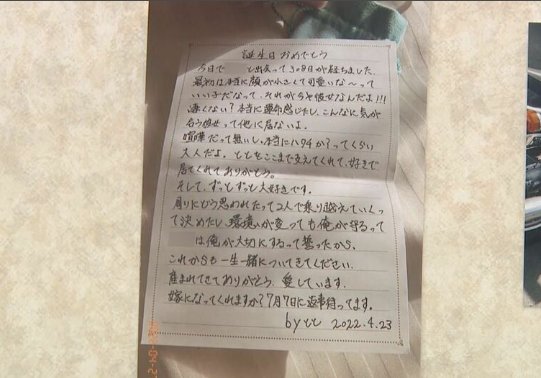 誕生日おめでとう
今日で と出会って308日が経ちました。
最初は本当に顔が小さくて可愛いな〜って
いい子だなって、それが今や彼女なんだよ!!!
凄くない?本当に運命感じたし、こんなに気が
合う彼女って他に居ないよ。
喧嘩だって無いし、本当にハタチか?ってくらい
大人だよ。ととをここまで支えてくれて、好きで
居てくれてありがとう。
そして、ずっとずっと大好きです。
周りにどう思われたって2人で乗り越えていくっ
て決めたし、環境が変っても俺が守るって
は俺が大切にするって誓ったから。
これからも一生一緒についてきてください。
産まれてきてありがとう。愛しています。
嫁になってくれますか?7月7日に返事待ってます。
by とと 2022.4.23